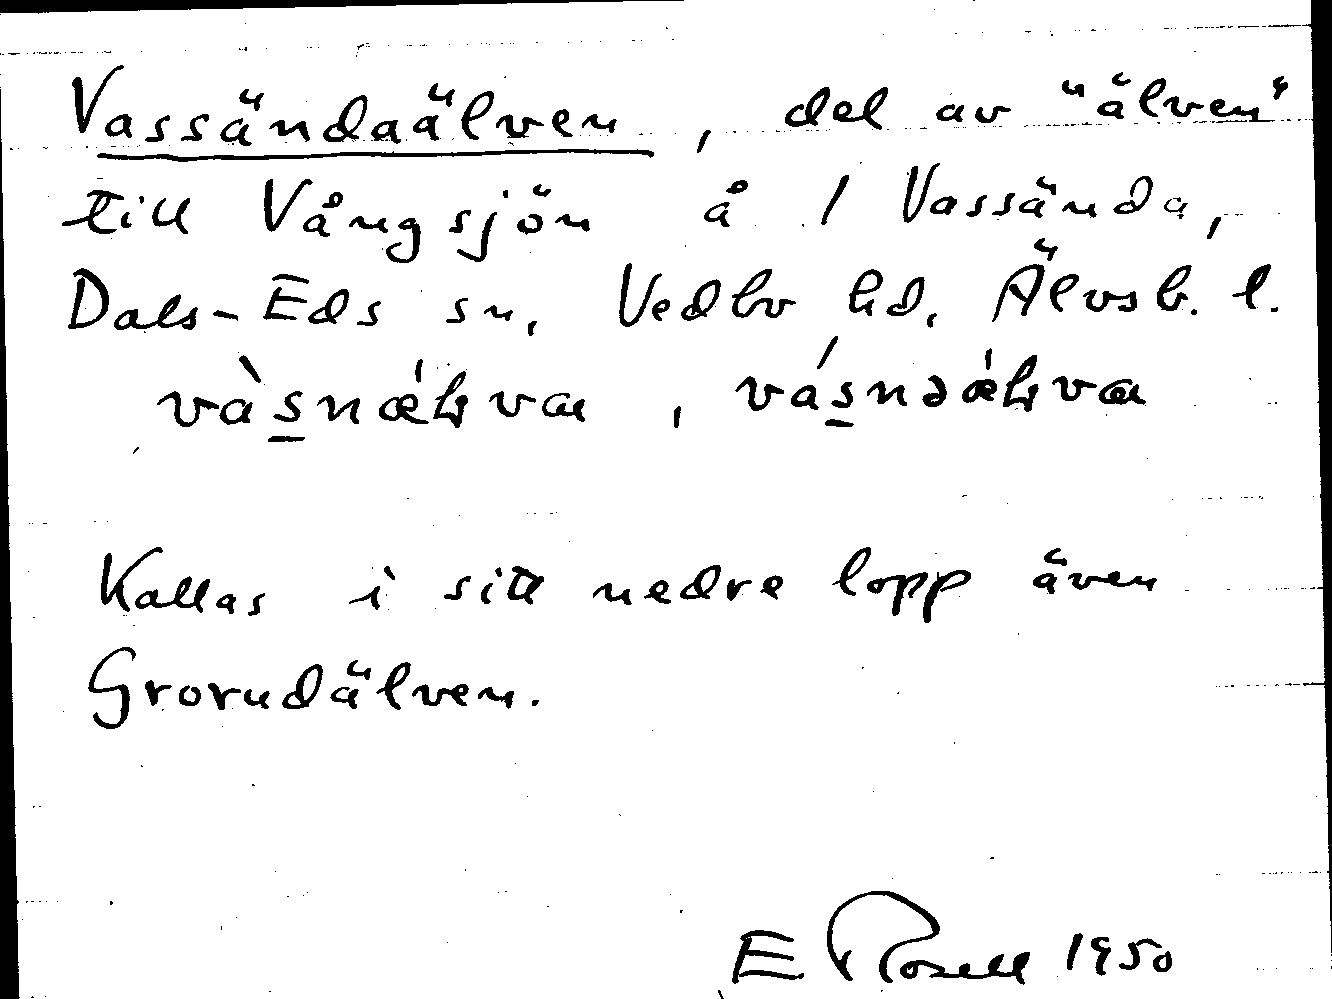 Vassändaälven, del av "älven"
till Vångsjön å / Vassända,
Dals-Eds sn, Vedbo hd, Älvsb. l.
Kallas i sitt nedre lopp även
Grorudälven.
E Rosell 1950